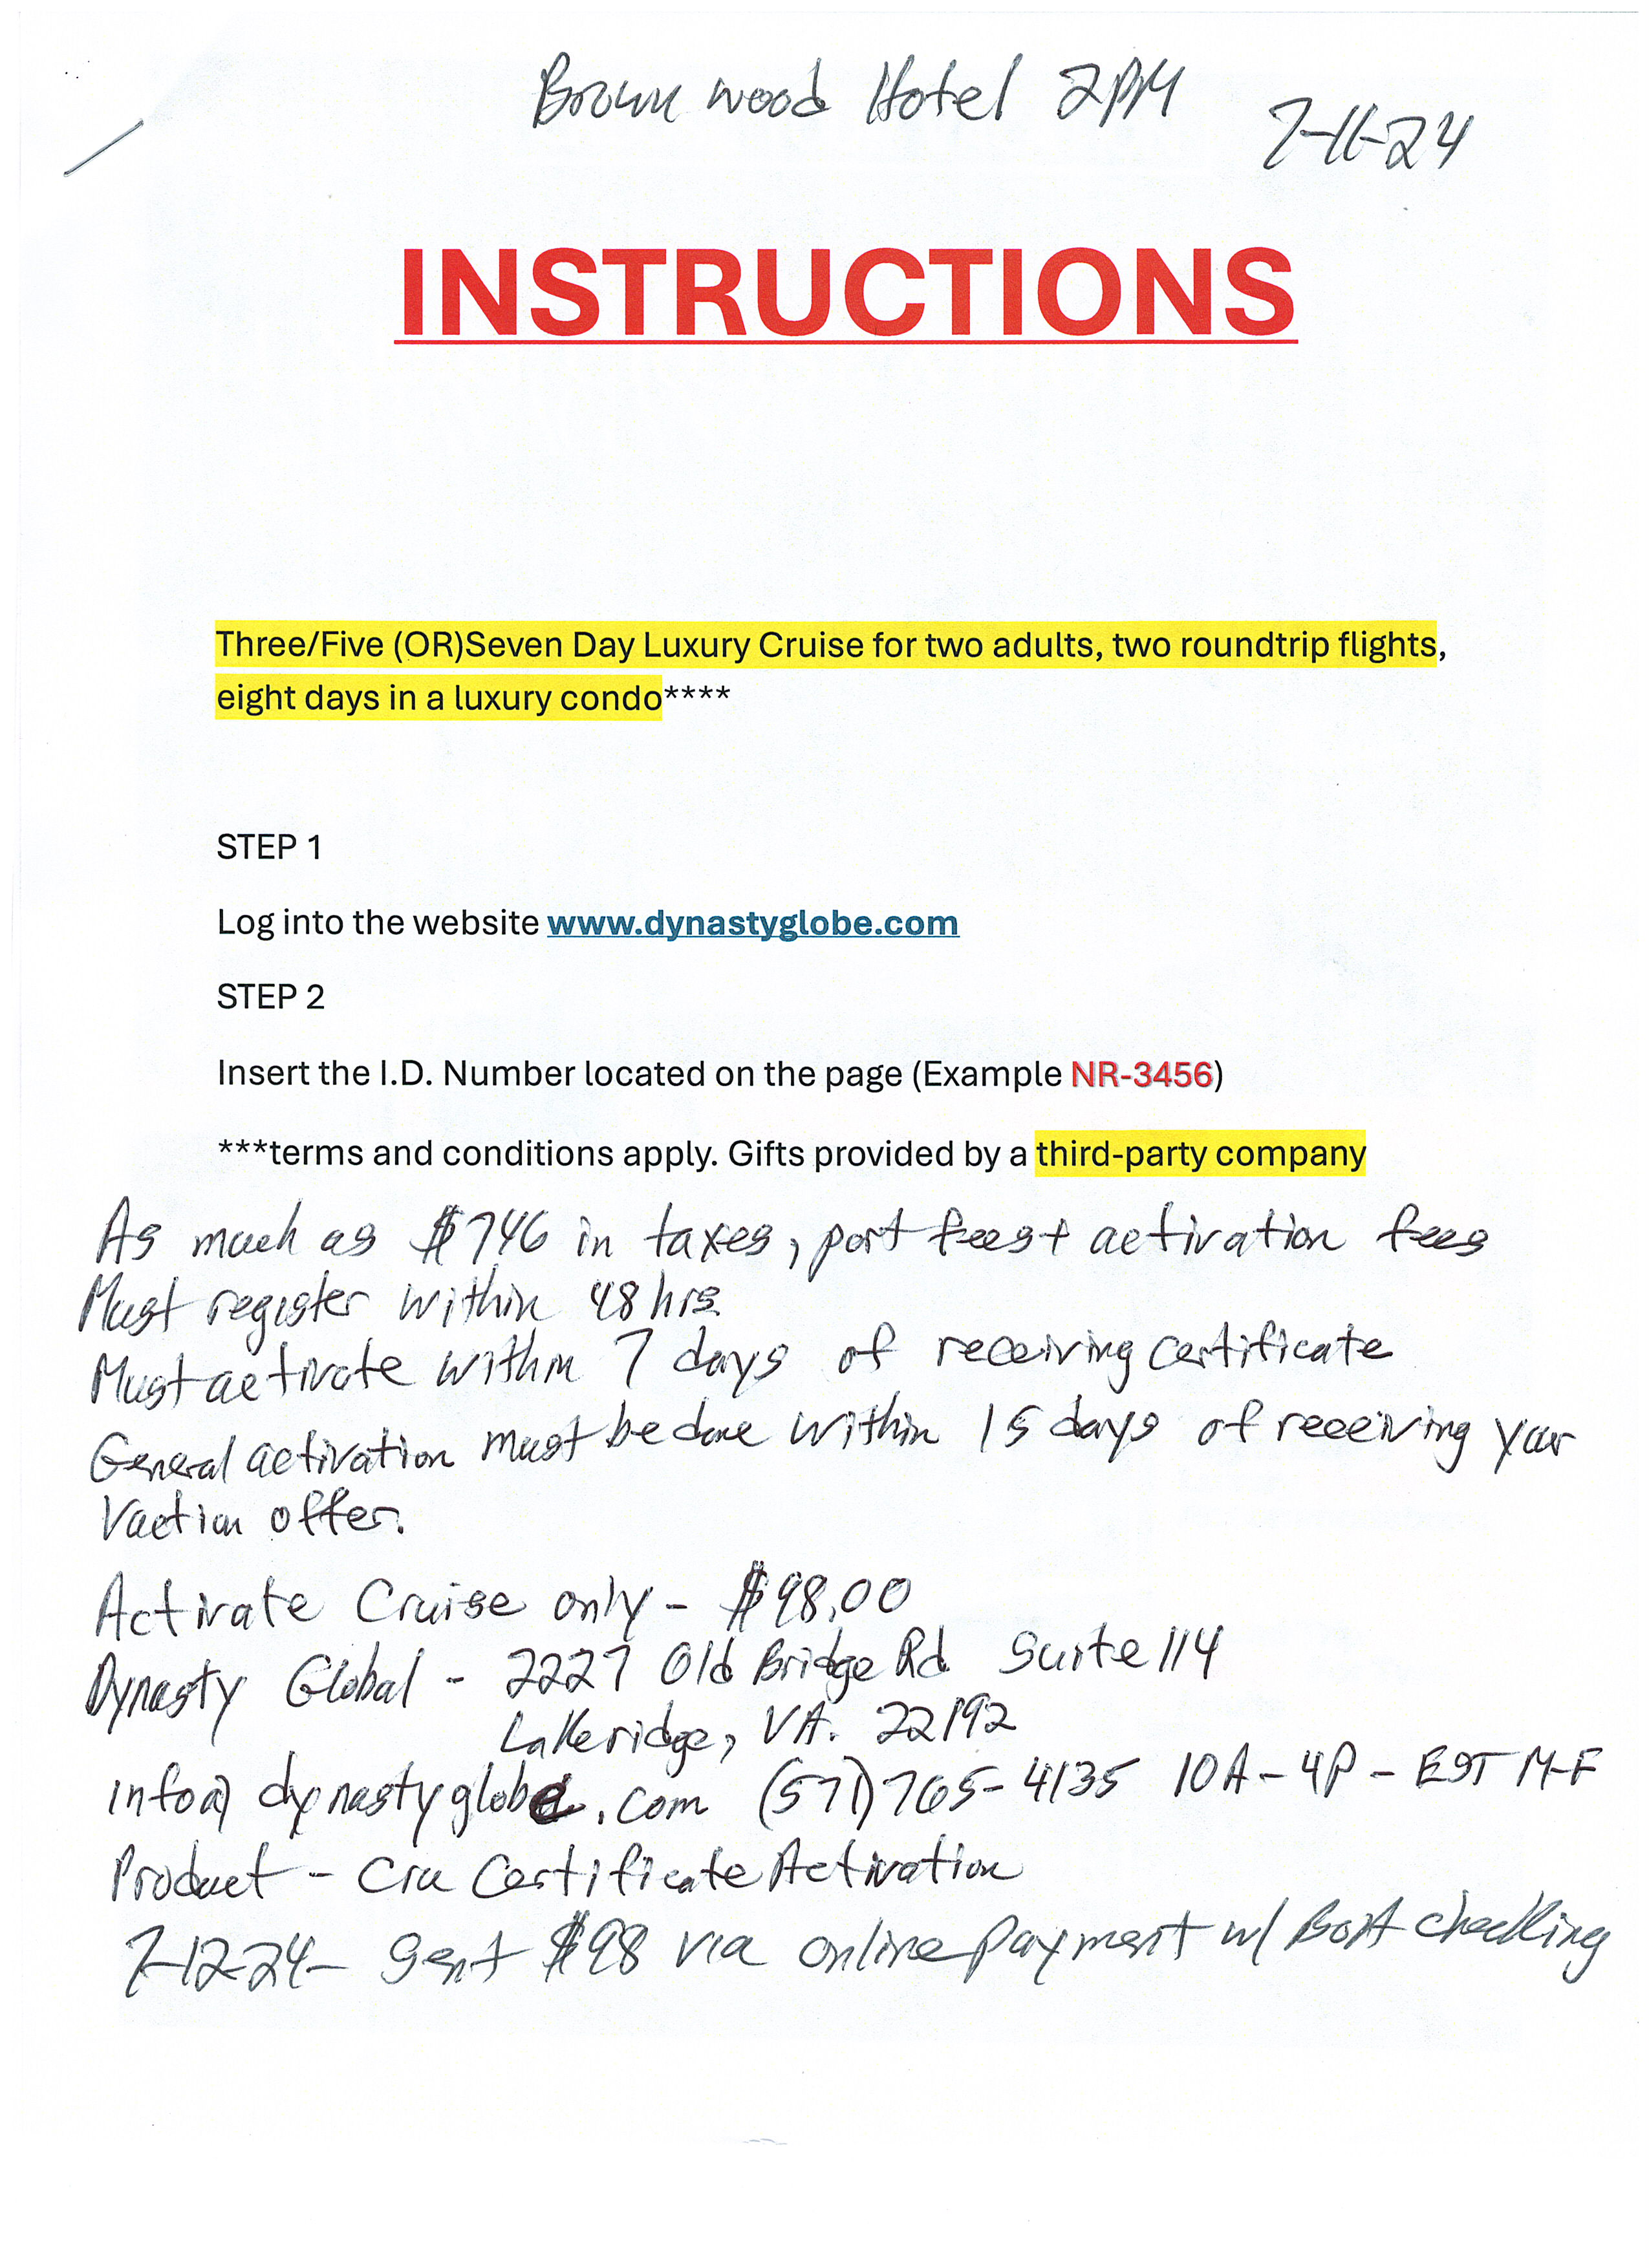 Brownwood Hotel 2PM
7-11-24
INSTRUCTIONS
Three/Five (OR)Seven Day Luxury Cruise for two adults, two roundtrip flights,
eight days in a luxury condo****
STEP 1
Log into the website www.dynastyglobe.com
STEP 2
Insert the I.D. Number located on the page (Example NR-3456)
***terms and conditions apply. Gifts provided by a third-party company
As much as $746 in taxes, port fees + activation fees
Must register within 48 hrs
Must activate within 7 days of receiving certificate
General activation must be done within 15 days of receiving your
Vaction offer.
Activate Cruise only - $98.00
Dynasty Global - 2227 Old Bridge Rd Suite 114
Lakeridge, VA. 22192
info@dynastyglobe.com (571) 765-4135 10A-4P - EST M-F
Product - Cru Certificate Activation
7-12-24- Sent $98 via online payment w/ BofA checking